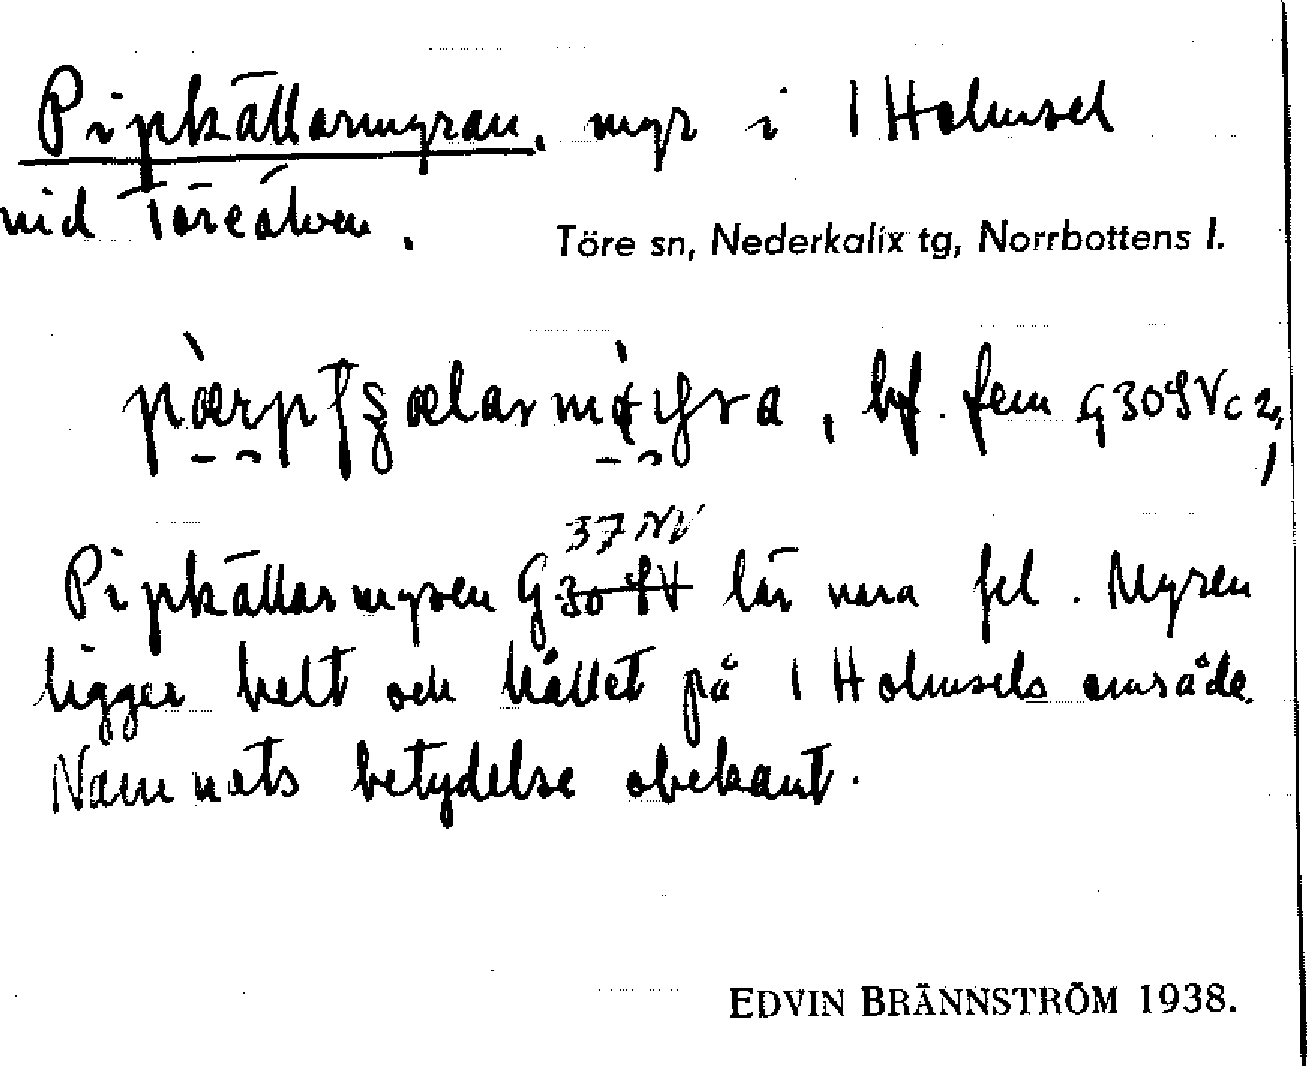 Pipkällarmyran, myr i 1 Holmsel
vid Töreälven.
Töre sn, Nederkalix tg, Norrbottens l.
, bf. fem G30SVc2,
37 NV
Pipkällarmyren G 30 SV lär vara fel. Myren
ligger helt och hållet på 1 Holmsels område.
Namnets betydelse obekant.
EDVIN BRÄNNSTRÖM 1938.